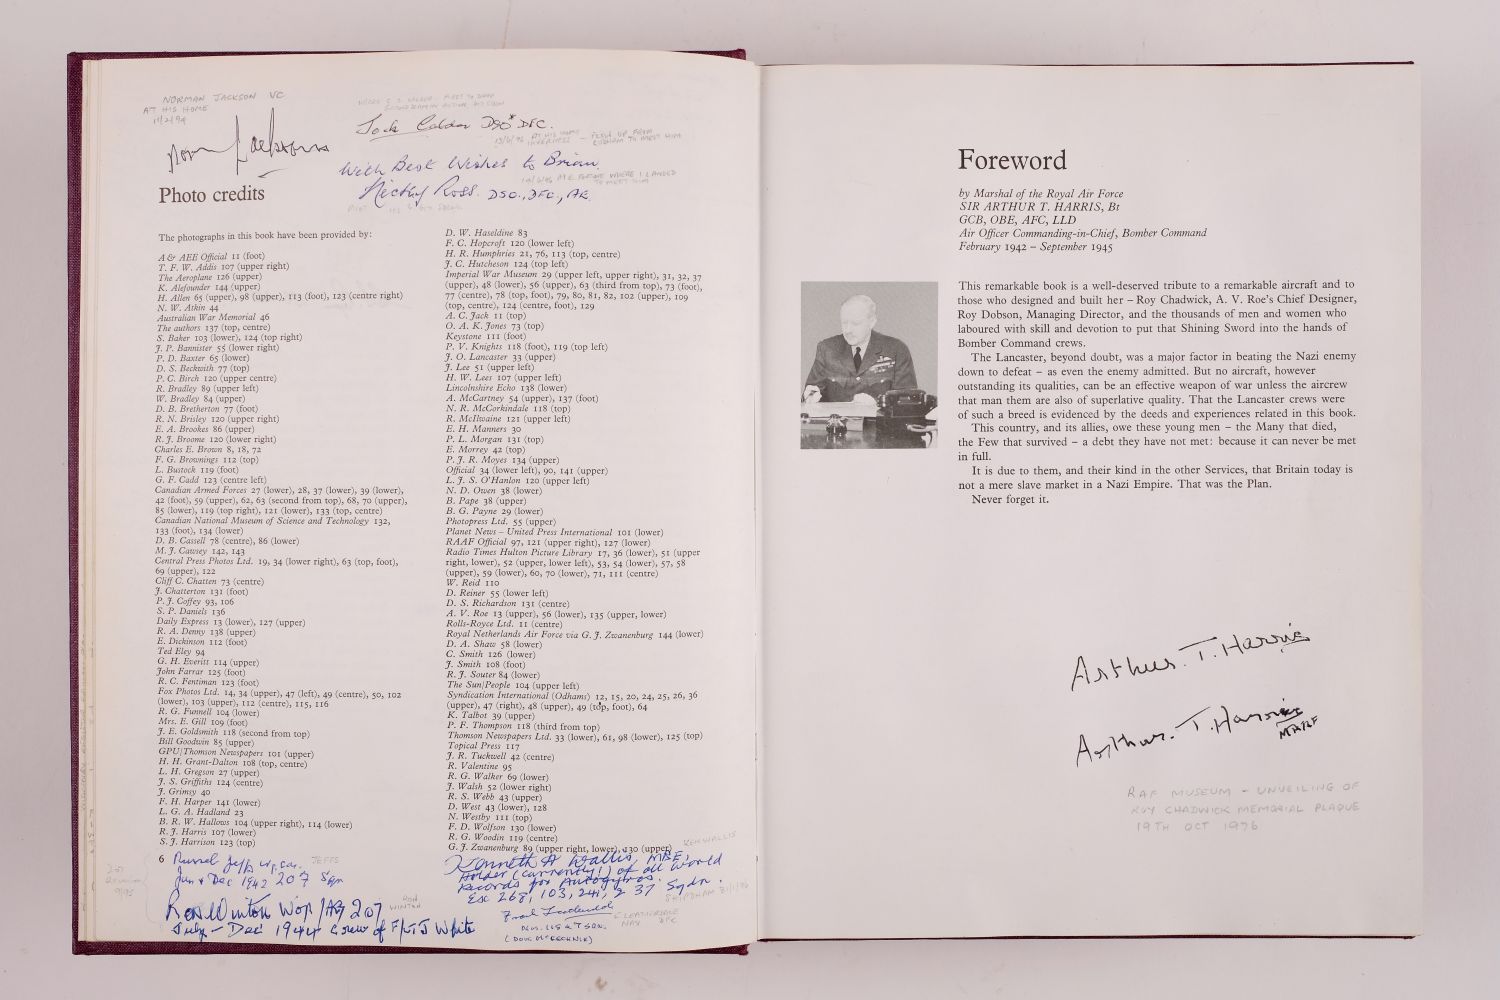 NORMAN JACKSON VC
AT HIS HOME
Jock Calder DSO* DFC.
With Best Wishes to Brian
Nicky Ross. DSO., DFC., AE.
Photo credits
The photographs in this book have been provided by:
A & AEE Official 11 (foot)
T. F. W. Addis 107 (upper right)
The Aeroplane 126 (upper)
K. Alefounder 144 (upper)
H. Allen 65 (upper), 98 (upper), 113 (foot), 123 (centre right)
N. W. Atkin 44
Australian War Memorial 46
The authors 137 (top, centre)
S. Baker 103 (lower), 124 (top right)
J. P. Bannister 55 (lower right)
P. D. Baxter 65 (lower)
D. S. Beckwith 77 (top)
P. C. Birch 120 (upper centre)
R. Bradley 89 (upper left)
W. Bradley 84 (upper)
D. B. Bretherton 77 (foot)
R. N. Brisley 120 (upper right)
E. A. Brookes 86 (upper)
R. J. Broome 120 (lower right)
Charles E. Brown 8, 18, 72
F. G. Brownings 112 (top)
L. Bustock 119 (foot)
G. F. Cadd 123 (centre left)
Canadian Armed Forces 27 (lower), 28, 37 (lower), 39 (lower),
42 (foot), 59 (upper), 62, 63 (second from top), 68, 70 (upper),
85 (lower), 119 (top right), 121 (lower), 133 (top, centre)
Canadian National Museum of Science and Technology 132,
133 (foot), 134 (lower)
D. B. Cassell 78 (centre), 86 (lower)
M. J. Cawsey 142, 143
Central Press Photos Ltd. 19, 34 (lower right), 63 (top, foot),
69 (upper), 122
Cliff C. Chatten 73 (centre)
J. Chatterton 131 (foot)
P. J. Coffey 93, 106
S. P. Daniels 136
Daily Express 13 (lower), 127 (upper)
R. A. Denny 138 (upper)
E. Dickinson 112 (foot)
Ted Eley 94
G. H. Everitt 114 (upper)
John Farrar 125 (foot)
R. C. Fentiman 123 (foot)
Fox Photos Ltd. 14, 34 (upper), 47 (left), 49 (centre), 50, 102
(lower), 103 (upper), 112 (centre), 115, 116
R. G. Funnell 104 (lower)
Mrs. E. Gill 109 (foot)
J. E. Goldsmith 118 (second from top)
Bill Goodwin 85 (upper)
GPU/Thomson Newspapers 101 (upper)
H. H. Grant-Dalton 108 (top, centre)
L. H. Gregson 27 (upper)
J. S. Griffiths 124 (centre)
J. Grimsy 40
F. H. Harper 141 (lower)
L. G. A. Hadland 23
B. R. W. Hallows 104 (upper right), 114 (lower)
R. J. Harris 107 (lower)
S. J. Harrison 123 (top)
D. W. Haseldine 83
F. C. Hopcroft 120 (lower left)
H. R. Humphries 21, 76, 113 (top, centre)
J. C. Hutcheson 124 (top left)
Imperial War Museum 29 (upper left, upper right), 31, 32, 37
(upper), 48 (lower), 56 (upper), 63 (third from top), 73 (foot),
77 (centre), 78 (top, foot), 79, 80, 81, 82, 102 (upper), 109
(top, centre), 124 (centre, foot), 129
A. C. Jack 11 (top)
O. A. K. Jones 73 (top)
Keystone 111 (foot)
P. V. Knights 118 (foot), 119 (top left)
J. O. Lancaster 33 (upper)
J. Lee 51 (upper left)
H. W. Lees 107 (upper left)
Lincolnshire Echo 138 (lower)
A. McCartney 54 (upper), 137 (foot)
N. R. McCorkindale 118 (top)
R. McIlwaine 121 (upper left)
E. H. Manners 30
P. L. Morgan 131 (top)
E. Morrey 42 (top)
P. J. R. Moyes 134 (upper)
Official 34 (lower left), 90, 141 (upper)
L. J. S. O'Hanlon 120 (upper left)
N. D. Owen 38 (lower)
B. Pape 38 (upper)
B. G. Payne 29 (lower)
Photopress Ltd. 55 (upper)
Planet News – United Press International 101 (lower)
RAAF Official 97, 121 (upper right), 127 (lower)
Radio Times Hulton Picture Library 17, 36 (lower), 51 (upper
right, lower), 52 (upper, lower left), 53, 54 (lower), 57, 58
(upper), 59 (lower), 60, 70 (lower), 71, 111 (centre)
W. Reid 110
D. Reiner 55 (lower left)
D. S. Richardson 131 (centre)
A. V. Roe 13 (upper), 56 (lower), 135 (upper, lower)
Rolls-Royce Ltd. 11 (centre)
Royal Netherlands Air Force via G. J. Zwanenburg 144 (lower)
D. A. Shaw 58 (lower)
C. Smith 126 (lower)
J. Smith 108 (foot)
R. J. Souter 84 (lower)
The Sun/People 104 (upper left)
Syndication International (Odhams) 12, 15, 20, 24, 25, 26, 36
(upper), 47 (right), 48 (upper), 49 (top, foot), 64
K. Talbot 39 (upper)
P. F. Thompson 118 (third from top)
Thomson Newspapers Ltd. 33 (lower), 61, 98 (lower), 125 (top)
Topical Press 117
J. R. Tuckwell 42 (centre)
R. Valentine 95
R. G. Walker 69 (lower)
J. Walsh 52 (lower right)
R. S. Webb 43 (upper)
D. West 43 (lower), 128
N. Westby 111 (top)
F. D. Wolfson 130 (lower)
R. G. Woodin 119 (centre)
G. J. Zwanenburg 89 (upper right, lower), 130 (upper)
6
JEFFS
Jan + Dec 1942 207 Sqn
Ron Winton Wop/AG 207
RON WINTON
July – Dec 1944 Crew of F/LT J White
KEN WALLIS
Kenneth H Wallis, MBE,
Holder (currently!) of all World
Records for Autogyros.
Ex 268, 103, 241, & 37 Sqdn.
SHIPDHAM
Foreword
by Marshal of the Royal Air Force
SIR ARTHUR T. HARRIS, Bt
GCB, OBE, AFC, LLD
Air Officer Commanding-in-Chief, Bomber Command
February 1942 – September 1945
This remarkable book is a well-deserved tribute to a remarkable aircraft and to
those who designed and built her – Roy Chadwick, A. V. Roe's Chief Designer,
Roy Dobson, Managing Director, and the thousands of men and women who
laboured with skill and devotion to put that Shining Sword into the hands of
Bomber Command crews.
The Lancaster, beyond doubt, was a major factor in beating the Nazi enemy
down to defeat – as even the enemy admitted. But no aircraft, however
outstanding its qualities, can be an effective weapon of war unless the aircrew
that man them are also of superlative quality. That the Lancaster crews were
of such a breed is evidenced by the deeds and experiences related in this book.
This country, and its allies, owe these young men – the Many that died,
the Few that survived – a debt they have not met: because it can never be met
in full.
It is due to them, and their kind in the other Services, that Britain today is
not a mere slave market in a Nazi Empire. That was the Plan.
Never forget it.
Arthur. T. Harris
Arthur. T. Harris
MRAF
RAF MUSEUM – UNVEILING OF
ROY CHADWICK MEMORIAL PLAQUE
19TH OCT 1976